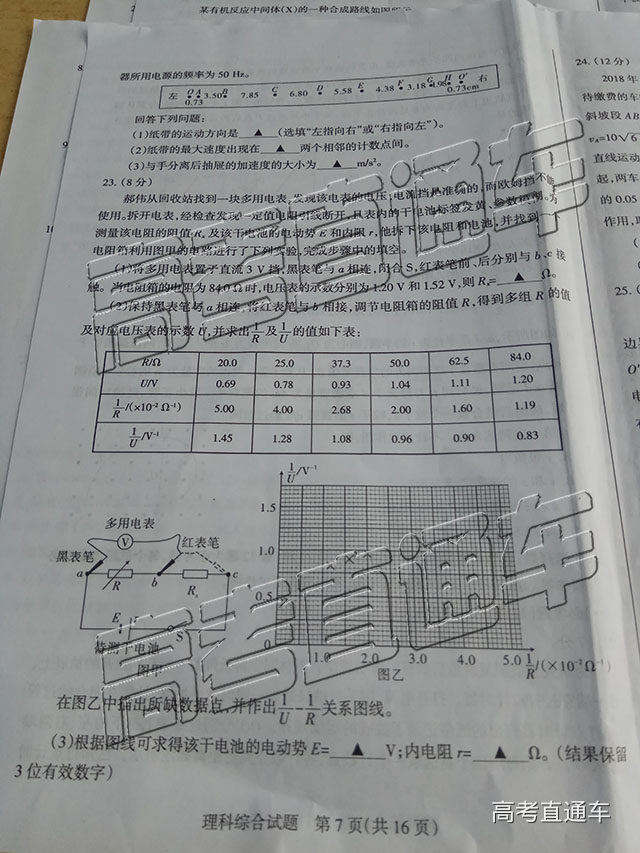 某有机反应中间体(X)的一种合成路线如图所示
器所用电源的频率为 50 Hz。
左 O A 3.50 B 7.85 C 6.80 D 5.58 E 4.38 F 3.18 G 1.98 H O' 右
0.73 0.73cm
回答下列问题:
(1)纸带的运动方向是 ▲ (选填“左指向右”或“右指向左”)。
(2)纸带的最大速度出现在 ▲ 两个相邻的计数点间。
(3)与手分离后抽屉的加速度的大小为 ▲ m/s²。
23.(8分)
郝伟从回收站找到一块多用电表,发现该表的电压、电流挡是准确的,而欧姆挡不能
使用。拆开电表,经检查发现一定值电阻引线断开,且表内的干电池标签发黄,参数模糊。为
测量该电阻的阻值Rₓ及该干电池的电动势E和内阻r,他拆下该电阻和电池,并找到一
电阻箱利用图甲的电路进行了下列实验,完成步骤中的填空。
(1)将多用电表置于直流 3 V 挡,黑表笔与a相连,闭合S,红表笔前、后分别与b、c接
触。当电阻箱的电阻为 84.0 Ω时,电压表的示数分别为1.20 V和1.52 V,则Rₓ= ▲ Ω。
(2)保持黑表笔与a相连,将红表笔与b相接,调节电阻箱的阻值R,得到多组R的值
及对应电压表的示数U,并求出1/R及1/U的值如下表:
R/Ω 20.0 25.0 37.3 50.0 62.5 84.0
U/V 0.69 0.78 0.93 1.04 1.11 1.20
1/R/(×10⁻² Ω⁻¹) 5.00 4.00 2.68 2.00 1.60 1.19
1/U/V⁻¹ 1.45 1.28 1.08 0.96 0.90 0.83
多用电表
V
黑表笔 红表笔
a R b Rₓ c
E r S
待测干电池
图甲
1/U/V⁻¹
1.5
1.0
0.5
0 1.0 2.0 3.0 4.0 5.0 1/R/(×10⁻² Ω⁻¹)
图乙
在图乙中描出所缺数据点,并作出1/U-1/R关系图线。
(3)根据图线可求得该干电池的电动势E= ▲ V;内电阻r= ▲ Ω。(结果保留
3位有效数字)
理科综合试题 第 7 页(共 16 页)
24.(12分)
2018年
待缴费的车
斜坡段AB
vA=10√6
直线运动
起,两车
的 0.05
作用,取
25.(
边界
O'
电
高考直通车
高考直通车
高考直通车